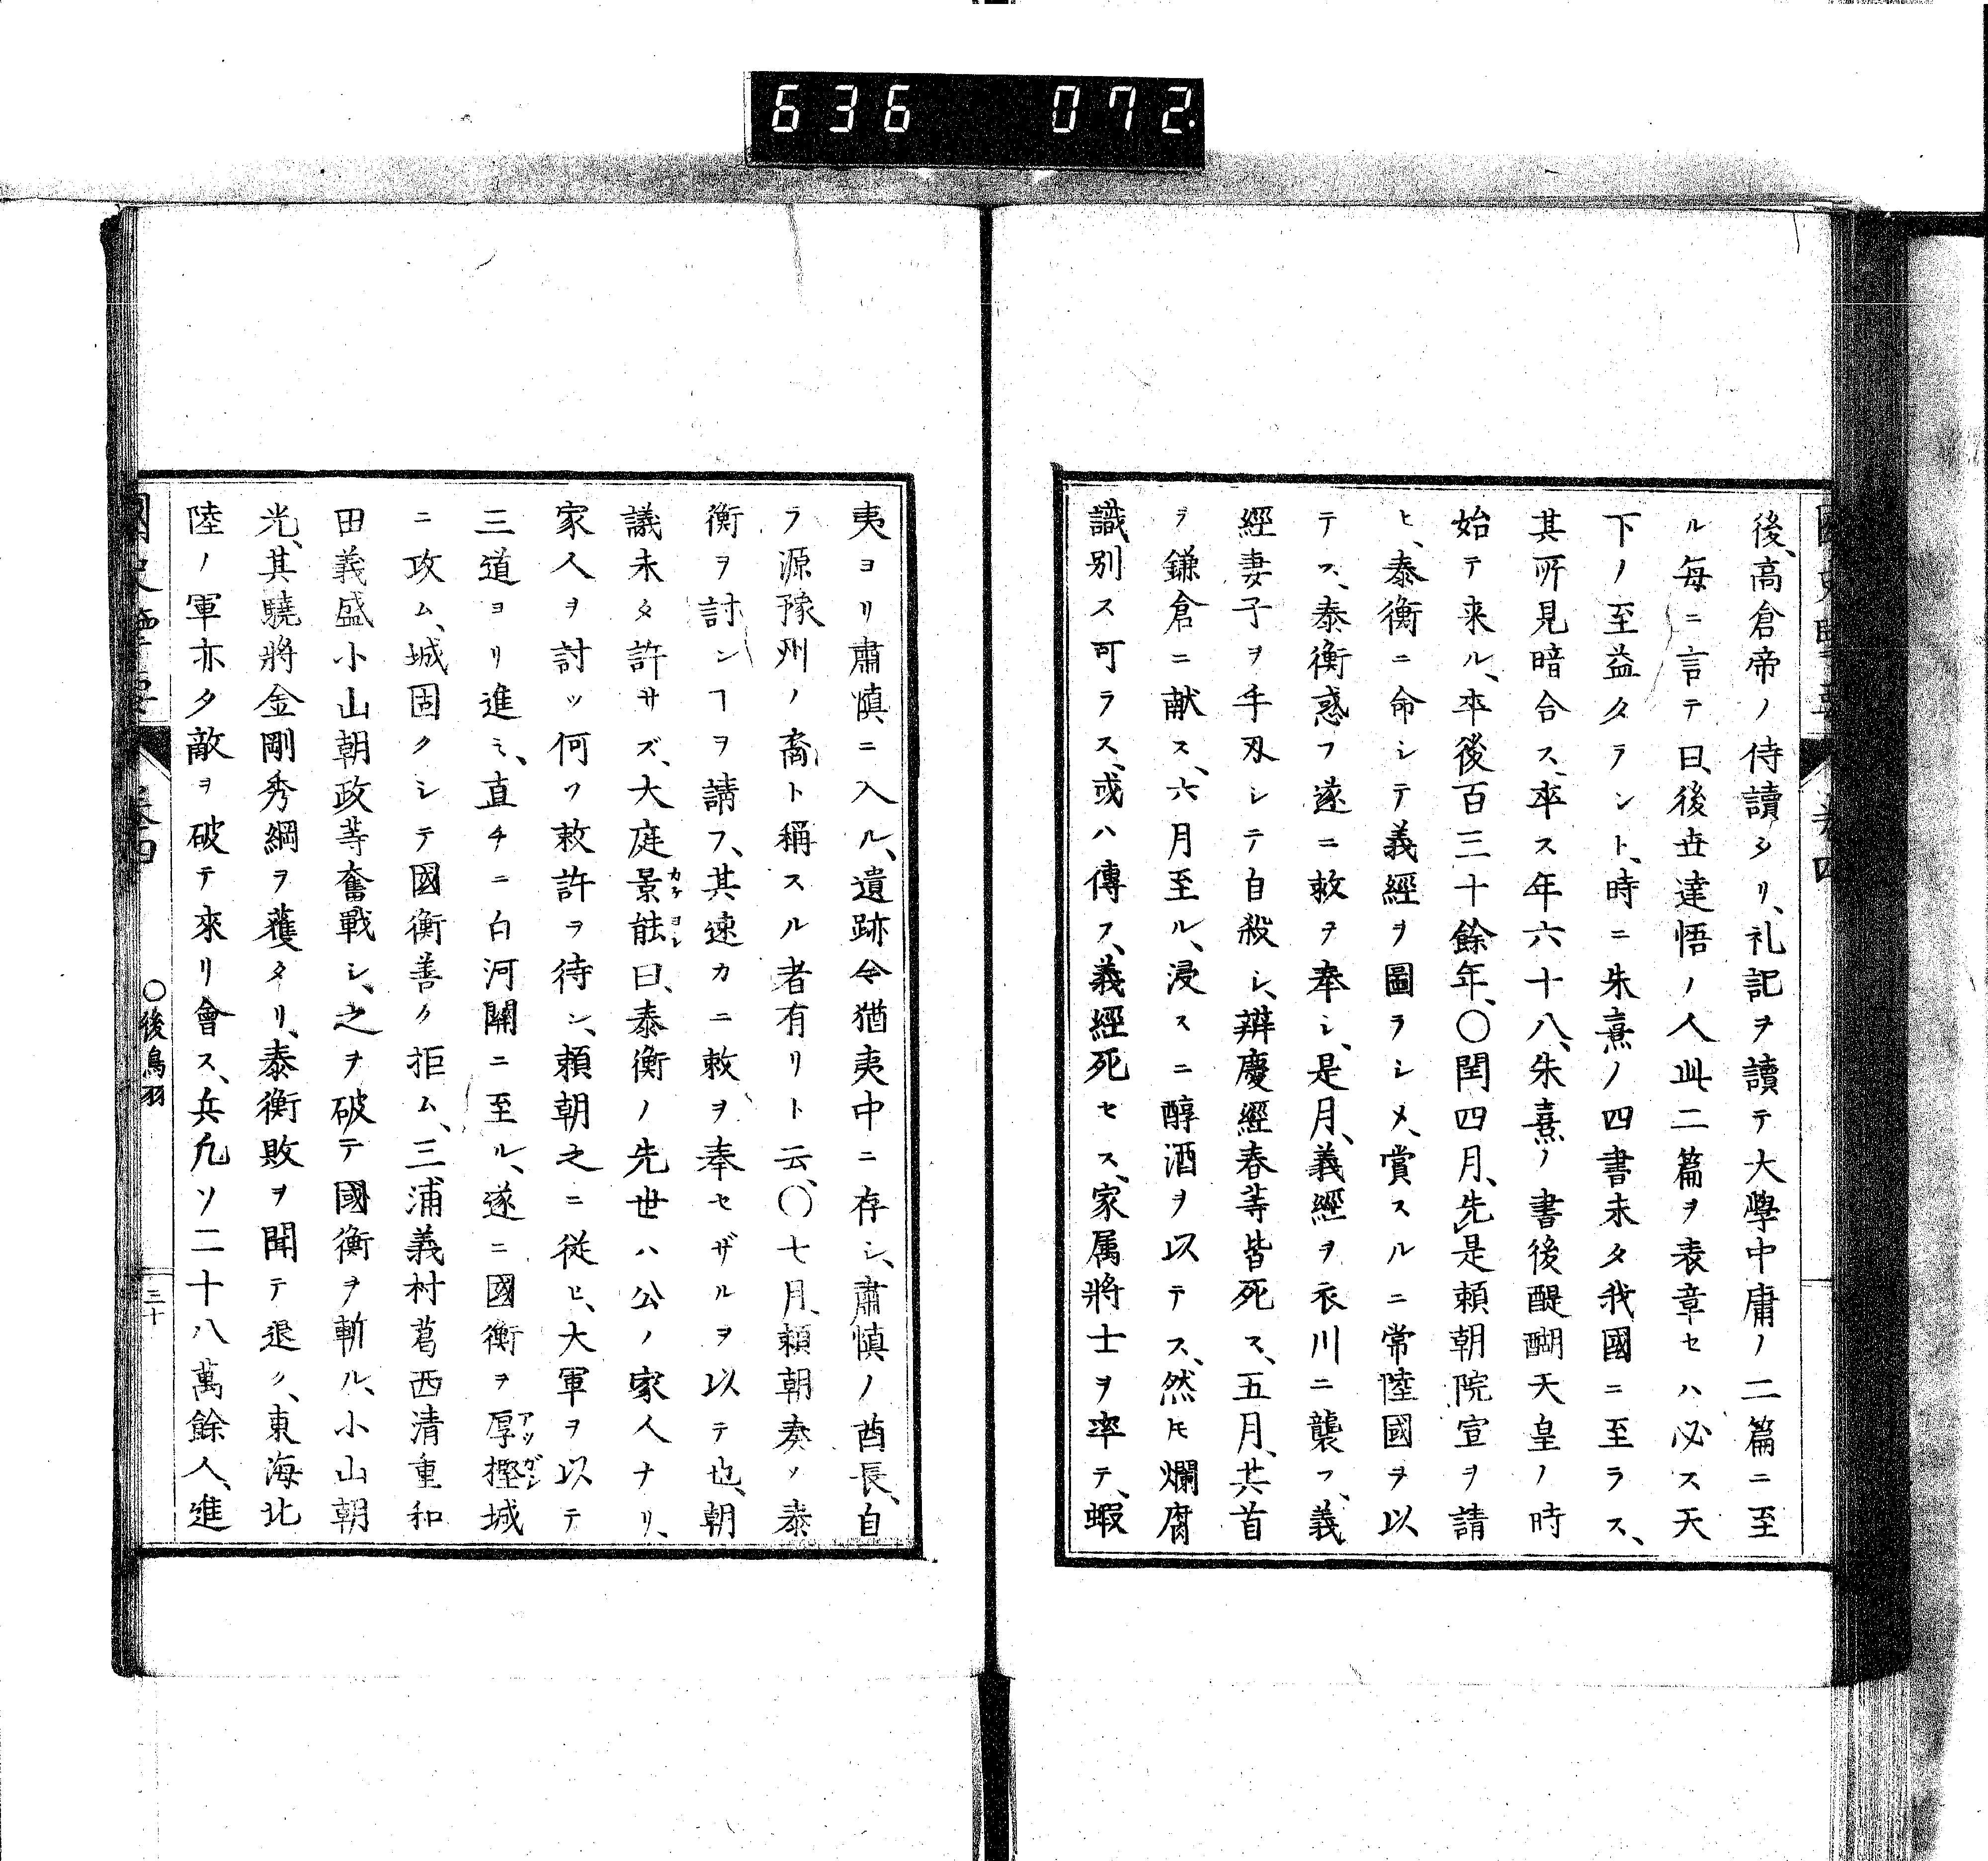 636 072
後、高倉帝ノ侍讀タリ、礼記ヲ讀テ大學中庸ノ二篇ニ至
ル毎ニ言テ曰、後世達悟ノ人此二篇ヲ表章セハ必ス天
下ノ至益タラント、時ニ朱熹ノ四書未タ我國ニ至ラス、
其所見暗合ス、卒ス年六十八、朱熹ノ書後醍醐天皇ノ時
始テ来ル、卒後百三十餘年、〇閏四月、先是頼朝院宣ヲ請
ヒ、泰衡ニ命シテ義經ヲ圖ラシメ、賞スルニ常陸國ヲ以
テス、泰衡惑フ遂ニ敕ヲ奉シ、是月、義經ヲ衣川ニ襲フ、義
經妻子ヲ手刃シテ自殺シ、辨慶經春等皆死ス、五月、其首
ヲ鎌倉ニ献ス、六月至ル、浸スニ醇酒ヲ以テス、然𪜈爛腐
識別ス可ラス、或ハ傳フ、義經死セス、家属將士ヲ率テ、蝦
夷ヨリ肅愼ニ入ル、遺跡今猶夷中ニ存シ、肅愼ノ酋長、自
ラ源豫州ノ裔ト稱スル者有リト云、〇七月、頼朝奏ノ泰
衡ヲ討ンヿヲ請フ、其速カニ敕ヲ奉セザルヲ以テ也、朝
議未タ許サズ、大庭景能カゲヨシ曰、泰衡ノ先世ハ公ノ家人ナリ、
家人ヲ討ツ何ソ敕許ヲ待ン、頼朝之ニ従ヒ、大軍ヲ以テ
三道ヨリ進ミ、直チニ白河關ニ至ル、遂ニ國衡ヲ厚樫アツガシ城
ニ攻ム、城固クシテ國衡善ク拒ム、三浦義村葛西清重和
田義盛小山朝政等奮戰シ、之ヲ破テ國衡ヲ斬ル、小山朝
光、其驍將金剛秀綱ヲ獲タリ、泰衡敗ヲ聞テ退ク、東海北
陸ノ軍亦タ敵ヲ破テ來リ會ス、兵凡ソ二十八萬餘人、進
巻四
〇後鳥羽
三十